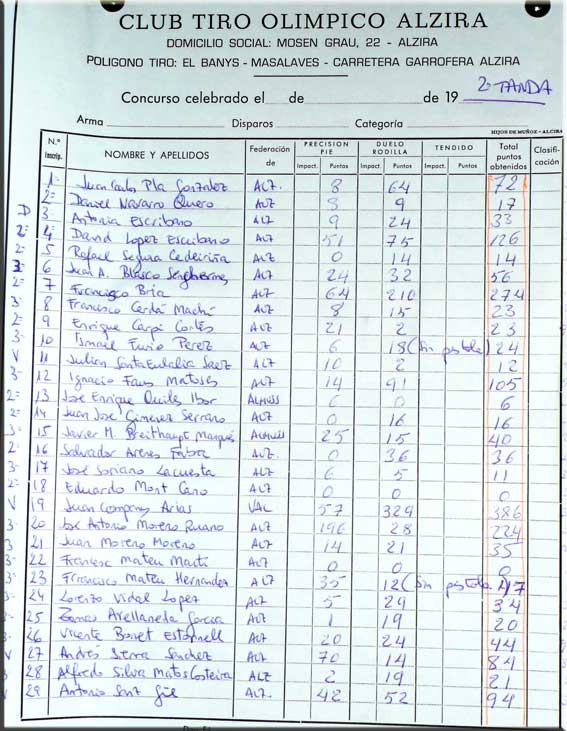 CLUB TIRO OLIMPICO ALZIRA
DOMICILIO SOCIAL: MOSEN GRAU, 22 - ALZIRA
POLIGONO TIRO: EL BANYS - MASALAVES - CARRETERA GARROFERA ALZIRA
Concurso celebrado el de de 19 2ª TANDA
Arma Disparos Categoría
HIJOS DE MUÑOZ - ALCIRA
N.º inscrip. NOMBRE Y APELLIDOS Federación de PRECISION PIE DUELO RODILLA TENDIDO Total puntos obtenidos Clasificación
Impact. Puntos Impact. Puntos Impact. Puntos
1- Juan Carlos Pla Gonzalez ALZ. 8 64 72
2- Daniel Navarro Quero ALZ 8 9 17
D 3- Antonia Escribano ALZ 9 24 33
2- 4 David Lopez Escribano ALZ 51 75 126
2- 5 Rafael Segura Cedeiriña ALZ 0 14 14
3- 6 Juan A. Blasco ALZ 24 32 56
2- 7 Francisco Bria ALZ 64 210 274
3- 8 Francisco Cerdá Machí ALZ 8 15 23
2- 9 Enrique Carpi Cortés ALZ 21 2 23
3- 10 Ismael Furio Perez ALZ 6 18 (Sin pistola) 24
V 11 Julian Santaeulalia Saez ALZ 10 2 12
3- 12 Ignacio Faus Matoses ALZ 14 91 105
2- 13 José Enrique Quiles Ibor 6 0 6
2- 14 Juan José Gimenez Serrano ALZ 0 16 16
3- 15 Javier M. Breithaupt Marqués 25 15 40
2- 16 Salvador Arenes ALZ. 0 36 36
3- 17 José Soriano Lacuesta ALZ 6 5 11
2- 18 Eduardo Mont Cano ALZ 0 0 0
V 19 Juan Companys Arias VAL 57 329 386
3- 20 José Antonio Moreno Ruano ALZ 196 28 224
3- 21 Juan Moreno Moreno ALZ 14 21 35
3- 22 Francesc Mateu Martí ALZ 0 0 0
3- 23 Francisco Mateu Hernandez ALZ 35 12 (Sin pistola)
3- 24 Lorenzo Vidal Lopez ALZ 5 29 34
25 Tomas Avellaneda Garcia ALZ 1 19 20
26 Vicente Bonet Estornell ALZ 20 24 44
V 27 Andrés Sierra Sanchez ALZ 70 14 84
28 Alfredo Silva Matos Costeira ALZ 2 19 21
V 29 Antonio Sanz Gil ALZ. 42 52 94